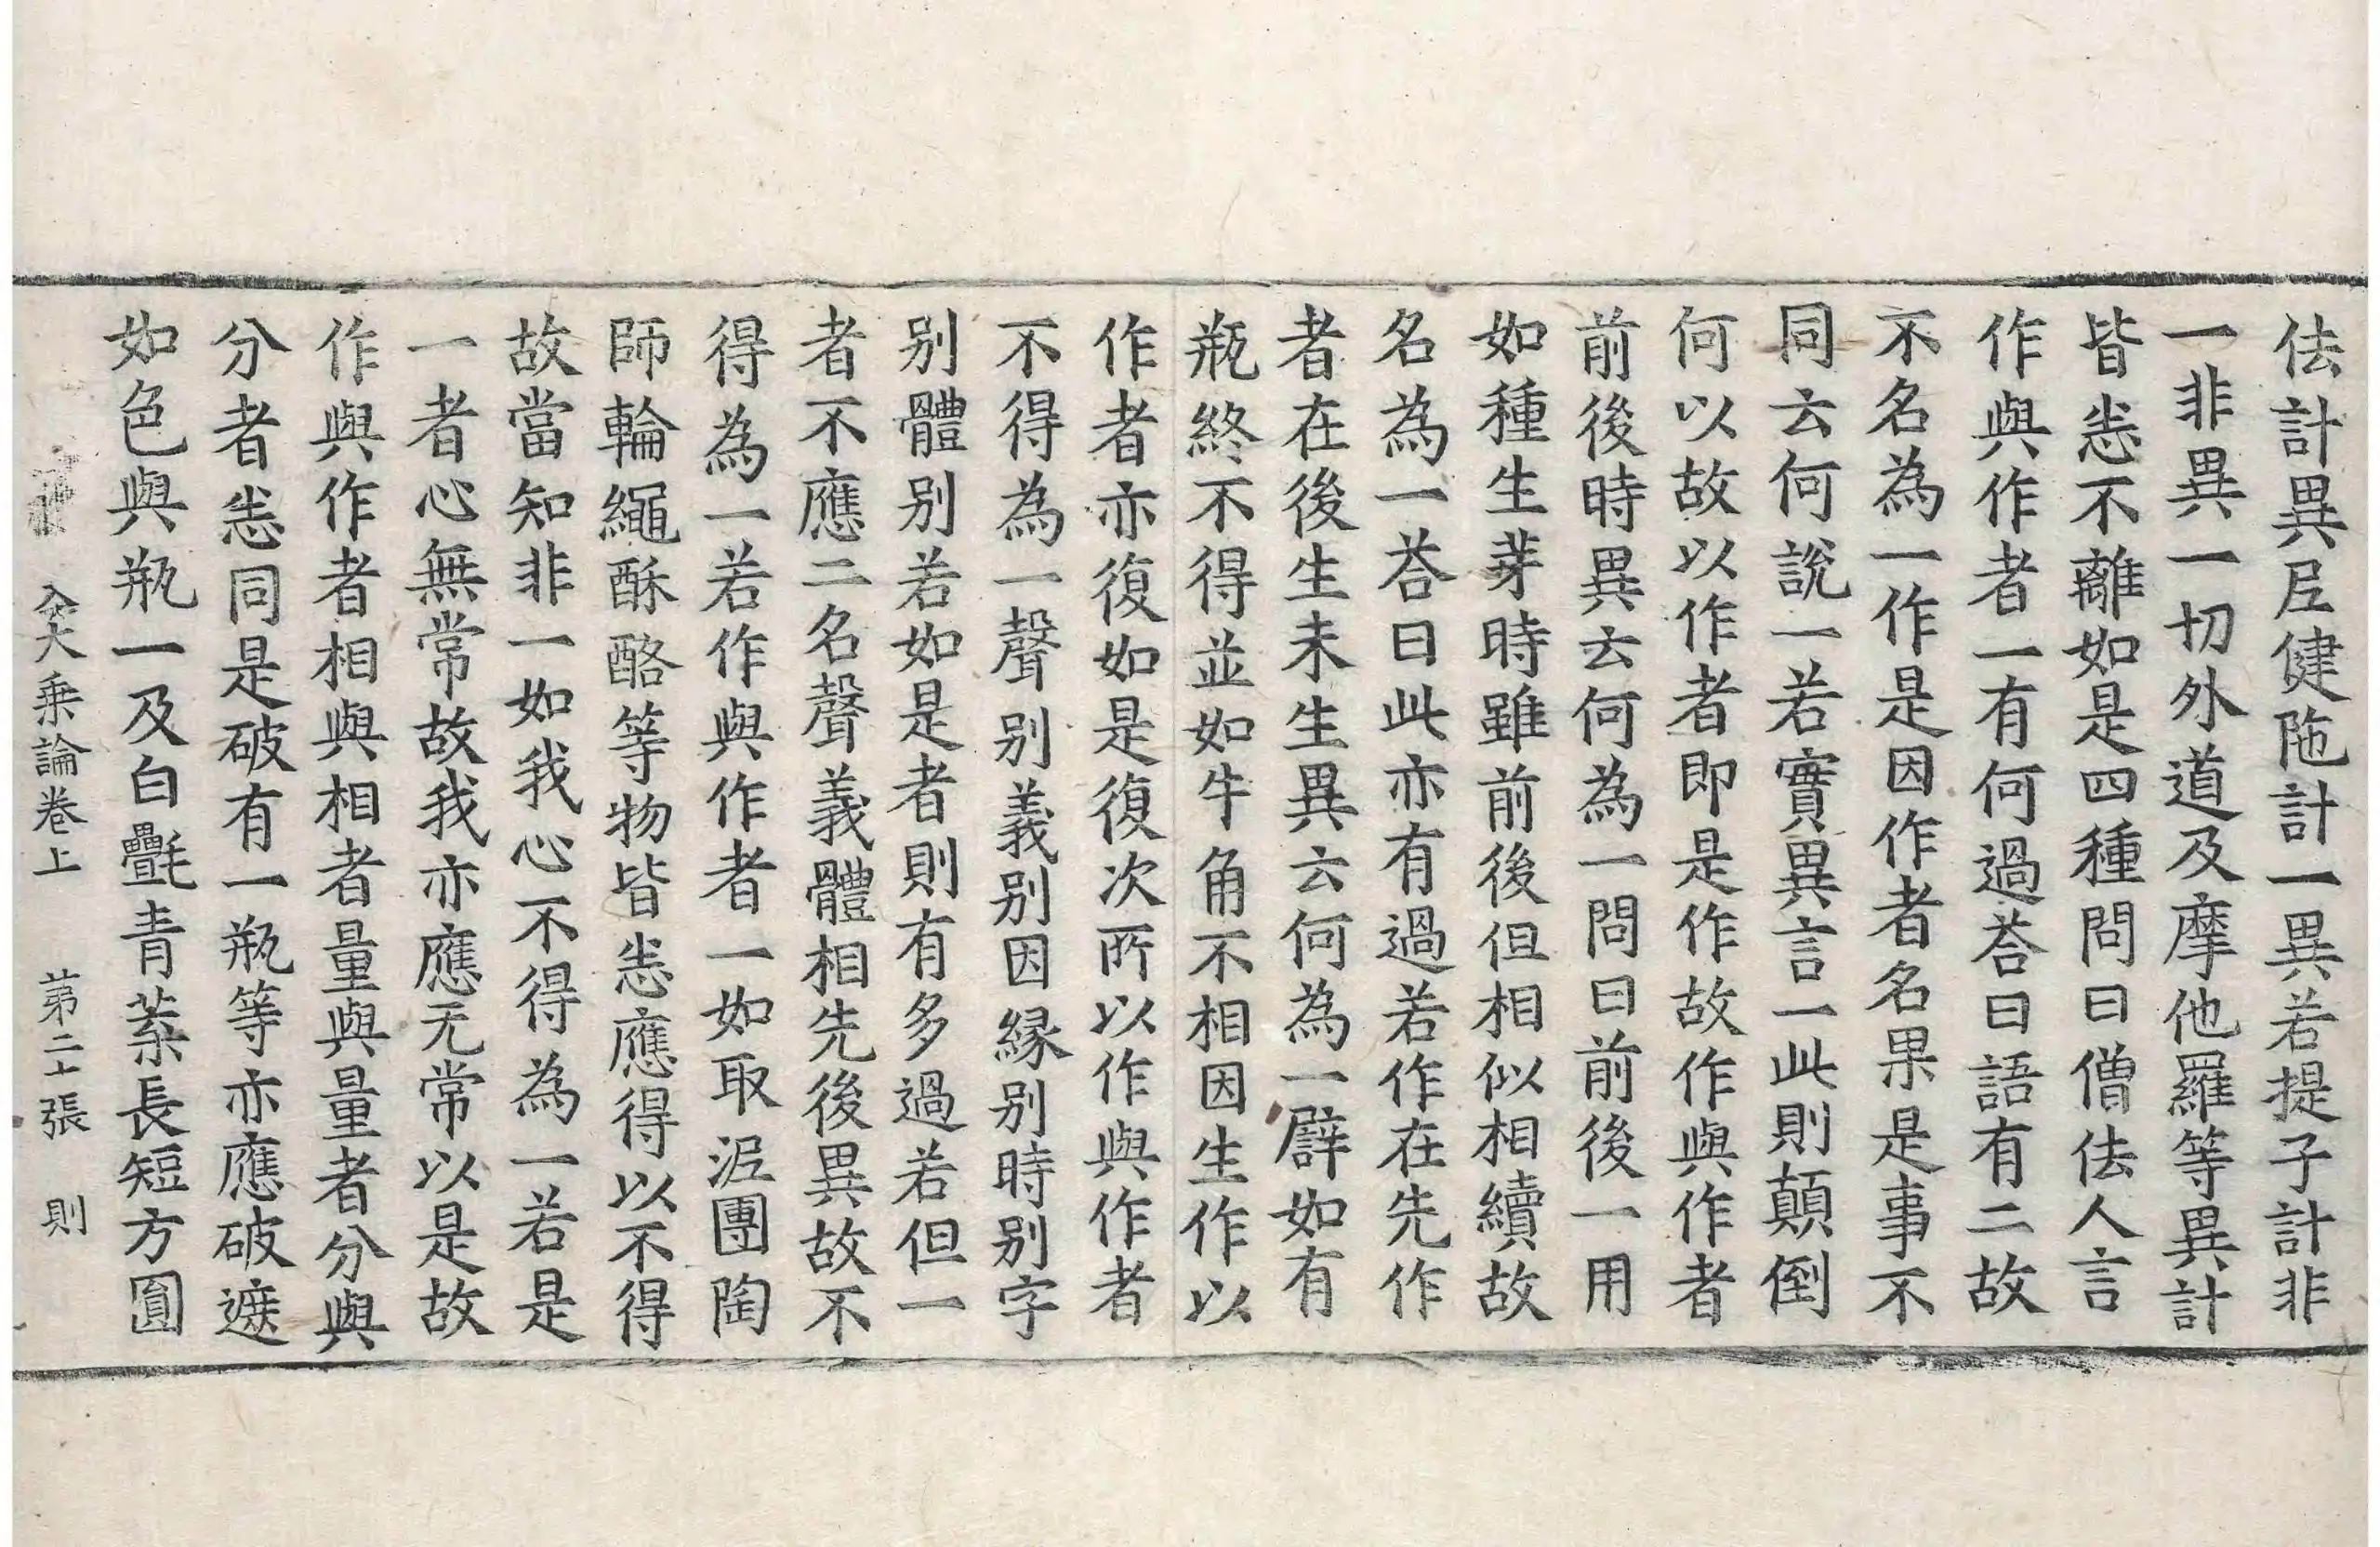 佉計異𡰱健陁計一異若提子計非
一非異一切外道及摩他羅等異計
皆㤪不離如是四種問曰僧佉人言
作與作者一有何過荅曰語有二故
不名為一作是因作者名果是事不
同云何說一若實異言一此則顛倒
何以故以作者即是作故作與作者
前後時異云何為一問曰前後一用
如種生芽時雖前後但相似相續故
名為一荅曰此亦有過若作在先作
者在後生未生異云何為一譬如有
瓶終不得並如牛角不相因生作以
作者亦復如是復次所以作與作者
不得為一聲别義别因縁别時别字
别體别若如是者則有多過若但一
者不應二名聲義體相先後異故不
得為一若作與作者一如取泥團陶
師輪繩酥酪等物皆㤪應得以不得
故當知非一如我心不得為一若是
一者心無常故我亦應无常以是故
作與作者相與相者量與量者分與
分者㤪同是破有一瓶等亦應破遮
如色與瓶一及白㲲青蒃長短方圓
入大乘論卷上 苐二十張 則